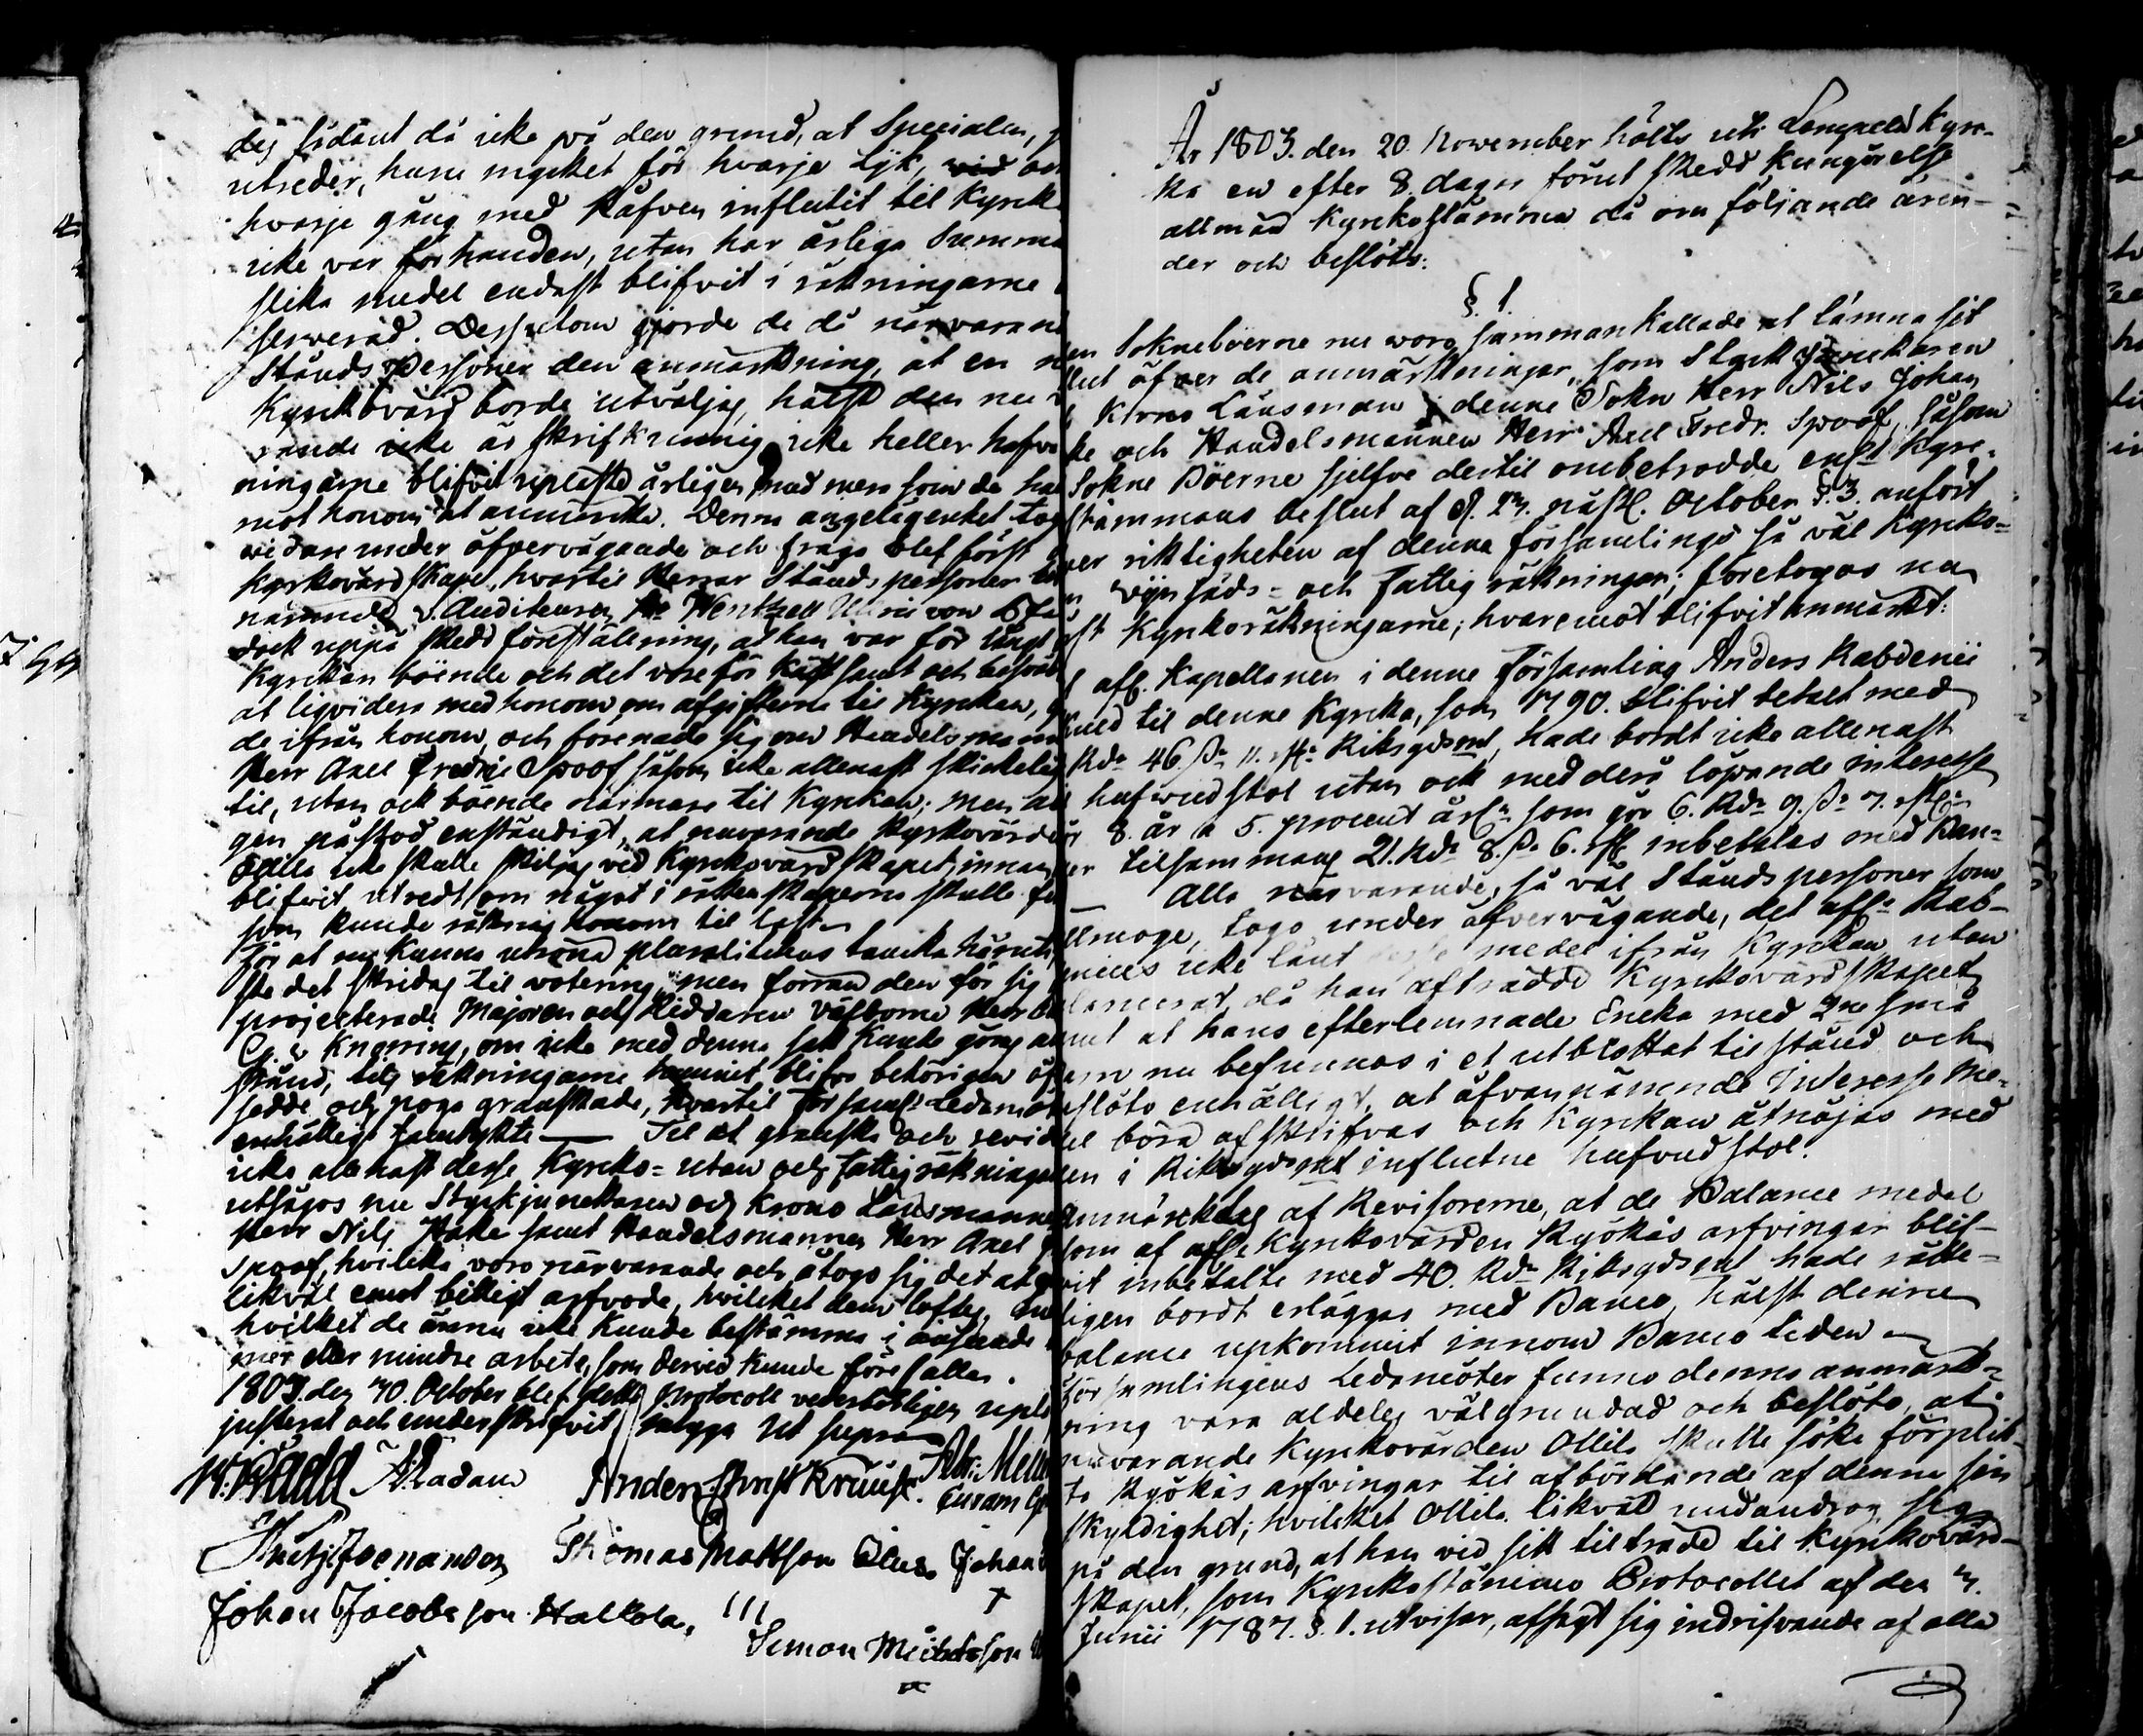 des sådant då icke på den grund, at Specialen,
utreder, huru mycket för hvarje Lijk,
hvarje gång med Håfven influtit til Kyrk
icke var för handen, utan har årliga Summa
slika medel endast blifvit i räkningarne
serverad. Dessutom gjorde de då närvaran
Stånds Personer den anmärkning, at en
Kyrkovärd borde utväljas, hälst den nu
rande icke är skrifkunnig icke heller hafva
ningarne blifvit uplästa årligen, med mera som de ha
mot honom at anmärka. Denna angelägenhet tog
vidare under öfvervägande och fråga blef först
Kyrkovärdskapet, hvartil Herrar Ståndspersoner
nämnde v. Auditeuren Wentzell Ulric von
dock uppå skedd föreställning, at han var för långt
Kyrkan boende och det vore för kostsamt och besvär
at liqvidera med honom om afgifterne til Kyrkan,
de ifrån honom, och förenade sig om Handelsmann
Herr Axel Fredric Spoof såsom icke allenast skickelig
til, utan ock boende närmare til Kyrkan; men
gen påstod enständigt, at nuvarande Kyrkovärden
Ollila icke skulle skiljas ved Kyrkovärdskapet, innan
blifvit utredt, om något i räkenskaperne skulle
som kunde räknas honom til last.
För at nu kunna utröna pluralitetens tancka häruti,
ste det skridas til votering, men förran den för sig
projecterade Majoren och Riddaren Välborne Herr
C. G. v. Knorring, om icke med denna sak kunde göras
stånd, tils räkningarne hunnit blifva behörigen
sedde och noga granskade, hvartil Församl:s Ledamöter
enhälligt samtykte — Til at granska och revid
icke allenast desse Kyrko- utan och Fattigräkningar
utsågos nu Styckjunckaren och Krono Länsmannen
Herr Nils Hake samt Handelsmannen Herr Axel
Spoof, hvilcka voro närvarande och åtogo sig det
likväl emot billigt arfvode, hvilcket dem loftes,
hvilket de ännu icke kunde bestämma i anseende
mer eller mindre arbete, som dervid kunde förefalla.
1803. den 30. October blef detta Protocoll vederbörligen upl
justerat och underskrifvit, Dag ut supra
Anders Christ Kruuse.
Thomas Mattson Johan
Johan Jacobsson Halkola, III
Simon Michelsson
År 1803. den 20. November hölts uti Lempelä Kyr-
ka en efter 8. dagars förut skedd kungörelse
allmän Kyrkostämma då om följande ären-
der och beslöts:
§. 1.
en Sokneboerne nu woro sammankallade at lämna sit
slut öfver de anmärkningar, som Styckjunckaren
Krono Länsman i denne Sokn Herr Nils Johan
ke och Handelsmannen Herr Axel Fredr. Spoof, såsom
Sokne Boerne sjelfve dertil ombetrodde enl:t Kyrc-
stämmans beslut af d. 23. nästl. October §. 3. anfört
ver riktigheten af denna församlings så väl Kyrcko-
vijn säds- och Fattig räkningar; företogos nu
st Kyrkoräkningarne; hvaremot blifvit anmärkt:
afl. Kapellanen i denne Församling Anders Rabdenii
skuld til denne Kyrcka, som 1790. blifvit betalt med
Rdr 46 sk: 11. rst: Riksgäldsmt, hade bordt icke allenast
hufvudstol utan ock med derå löpande interesse
för 8. år à 5. procent årl:n som gör 6. Rdr 9. sk: 7. rst:
er tilsammans 21. Rdr 8. sk: 6. rst inbetalas med Ban-
— Alla närvarande, så väl Ståndspersoner som
llmoge, togo under öfvervägande, det afl:e Rab-
denius icke lånt desse medel ifrån Kyrckan utan
lancerat, då han afträdde Kyrckovärdskapet
samt at hans efterlemnade Encka med 3ne små
arn nu befunnos i et utblottat tilstånd och
eslöto enhälligt, at åfvannämnde Interesse me-
del böra afskrifvas och Kyrckan åtnöjas med
en i Riksgäldsmt influtne hufvudstol.
Anmärcktes af Revisorerne, at de Balance medel
som af afl:e Kyrckovärden Ryökäs arfvingar blif-
vit inbetalte med 40. Rdr Riksgäldsmt hade rätte-
ligen bordt erläggas med Banco, hälst denne
balance upkommit innom Banco tiden —
Församlingens Ledamöter funno denne anmärk-
ning vara aldeles välgrundad och beslöto, at
nuvarande Kyrckovärden Ollila skulle söka förplik-
ta Ryökäs arfvingar til afbördande af denne sin
skyldighet; hvilcket Ollila likväl undandrog sig
på den grund, at han vid sitt tilträde til Kyrkovärd-
skapet, som Kyrckostämmo Protocollet af den 3.
Junii 1787. §. 1. utvisar, afsagt sig indrifvande af alla